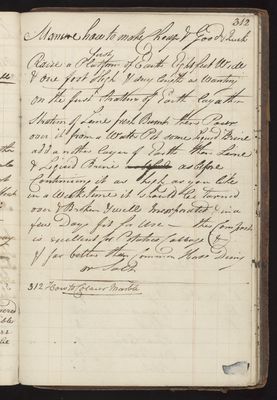 312
Manure how to make Cheap & Good & Quick
first
Raise a Platform of Earth Eight feet Wide
& one foot High & any length as Wanting
on the first Stratum of Earth lay another
Stratum of Lime fresh Burnt then Pour
over it from a Water Pot some Liquid Brine
add another layer of Earth then Lime
& Liquid Brine as before
Continuing it as high as you like
in a Week time it should be turned
over & Broken & well Incorporated & in a
few Days fit for Use — this Compost
is excellent for Potatoes Cabbage &
& far better than Common Horse Dung
or Salt
312 How to Colour Marble